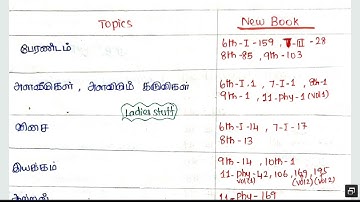 Topics New Book
பேரண்டம் 6th-I-159, 7-III-28
8th-85, 9th-103
அளவீடுகள், அளவிடும் கருவிகள் 6th-I-1, 7-I-1, 8th-1
9th-1, 11-phy-1 (vol1)
Ladies stuff
விசை 6th-I-14, 7-I-17
8th-13
இயக்கம் 9th-14, 10th-1
11-phy-42, 106, 149, 195
(vol1) (vol2) (vol2)
11-phy-169